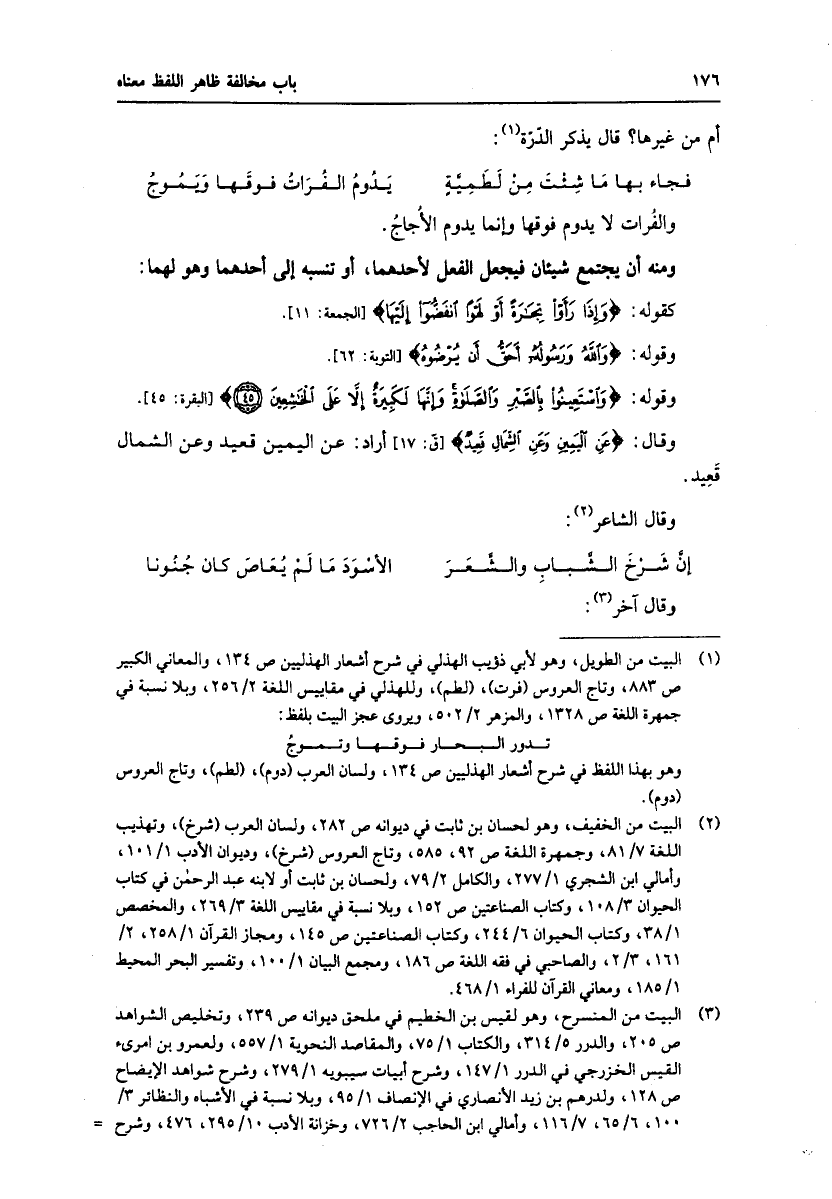 ١٧٦ باب مخالفة ظاهر اللفظ معناه
أم من غيرها؟ قال يذكر الدّرّة(١):
فجاء بها مَا شِئْتَ مِنْ لَطَمِيَّةٍ يَدُومُ الفُرَاتُ فوقَها وَيَمُوجُ
والفُرات لا يدوم فوقها وإنما يدوم الأُجاجُ.
ومنه أن يجتمع شيئان فيجعل الفعل لأحدهما، أو تنسبه إلى أحدهما وهو لهما:
كقوله: ﴿وَإِذَا رَأَوْا۟ تِجَـٰرَةً أَوْ لَهْوًا ٱنفَضُّوٓا۟ إِلَيْهَا﴾ [الجمعة: ١١].
وقوله: ﴿وَٱللَّهُ وَرَسُولُهُۥٓ أَحَقُّ أَن يُرْضُوهُ﴾ [التوبة: ٦٢].
وقوله: ﴿وَٱسْتَعِينُوا۟ بِٱلصَّبْرِ وَٱلصَّلَوٰةِ ۚ وَإِنَّهَا لَكَبِيرَةٌ إِلَّا عَلَى ٱلْخَـٰشِعِينَ ٤٥﴾ [البقرة: ٤٥].
وقال: ﴿عَنِ ٱلْيَمِينِ وَعَنِ ٱلشِّمَالِ قَعِيدٌ﴾ [قّ: ١٧] أراد: عن اليمين قعيد وعن الشمال
قَعِيد.
وقال الشاعر(٢):
إنَّ شَرْخَ الشَّبابِ والشَّعَرَ الأسْوَدَ مَا لَمْ يُعَاصَ كان جُنُونا
وقال آخر(٣):
(١) البيت من الطويل، وهو لأبي ذؤيب الهذلي في شرح أشعار الهذليين ص ١٣٤، والمعاني الكبير
ص ٨٨٣، وتاج العروس (فرت)، (لطم)، وللهذلي في مقاييس اللغة ٢/ ٢٥٦، وبلا نسبة في
جمهرة اللغة ص ١٣٢٨، والمزهر ٢/ ٥٠٢، ويروى عجز البيت بلفظ:
تدور البحار فوقها وتموجُ
وهو بهذا اللفظ في شرح أشعار الهذليين ص ١٣٤، ولسان العرب (دوم)، (لطم)، وتاج العروس
(دوم).
(٢) البيت من الخفيف، وهو لحسان بن ثابت في ديوانه ص ٢٨٢، ولسان العرب (شرخ)، وتهذيب
اللغة ٧/ ٨١، وجمهرة اللغة ص ٩٢، ٥٨٥، وتاج العروس (شرخ)، وديوان الأدب ١/ ١٠١،
وأمالي ابن الشجري ١/ ٢٧٧، والكامل ٢/ ٧٩، ولحسان بن ثابت أو لابنه عبد الرحمٰن في كتاب
الحيوان ٣/ ١٠٨، وكتاب الصناعتين ص ١٥٢، وبلا نسبة في مقاييس اللغة ٣/ ٢٦٩، والمخصص
١/ ٣٨، وكتاب الحيوان ٦/ ٢٤٤، وكتاب الصناعتين ص ١٤٥، ومجاز القرآن ١/ ٢٥٨، ٢/
١٦١، ٢/٣، والصاحبي في فقه اللغة ص ١٨٦، ومجمع البيان ١/ ١٠٠، وتفسير البحر المحيط
١/ ١٨٥، ومعاني القرآن للفراء ١/ ٤٦٨.
(٣) البيت من المنسرح، وهو لقيس بن الخطيم في ملحق ديوانه ص ٢٣٩، وتخليص الشواهد
ص ٢٠٥، والدرر ٥/ ٣١٤، والكتاب ١/ ٧٥، والمقاصد النحوية ١/ ٥٥٧، ولعمرو بن امرىء
القيس الخزرجي في الدرر ١/ ١٤٧، وشرح أبيات سيبويه ١/ ٢٧٩، وشرح شواهد الإيضاح
ص ١٢٨، ولدرهم بن زيد الأنصاري في الإنصاف ١/ ٩٥، وبلا نسبة في الأشباه والنظائر ٣/
١٠٠، ٦/ ٦٥، ٧/ ١١٦، وأمالي ابن الحاجب ٢/ ٧٢٦، وخزانة الأدب ١٠/ ٢٩٥، ٤٧٦، وشرح =